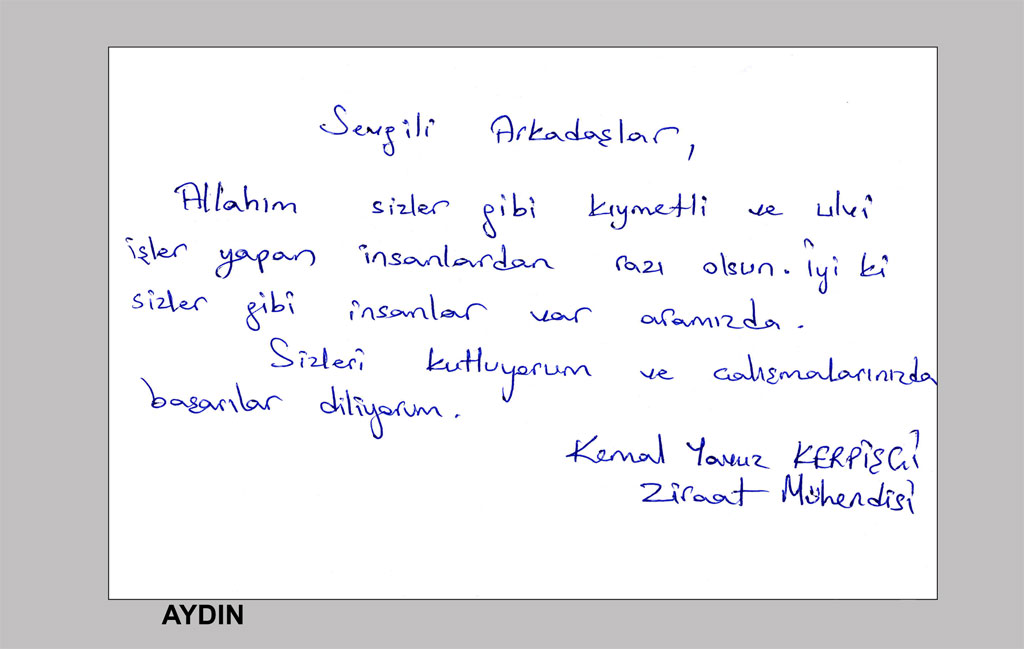 Sevgili Arkadaşlar,
Allahım sizler gibi kıymetli ve ulvi
işler yapan insanlardan razı olsun. İyi ki
sizler gibi insanlar var aramızda.
Sizleri kutluyorum ve çalışmalarınızda
başarılar diliyorum.
Kemal Yavuz KERPİŞÇİ
Ziraat Mühendisi
AYDIN